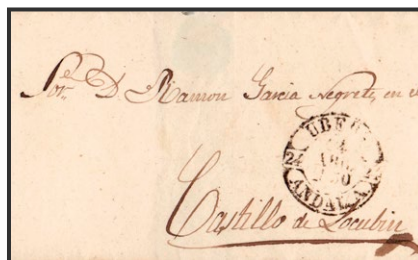 Sor. D. Ramon Garcia Negrete, en el
UBEDA
ANDAL.
Castillo de Locubin